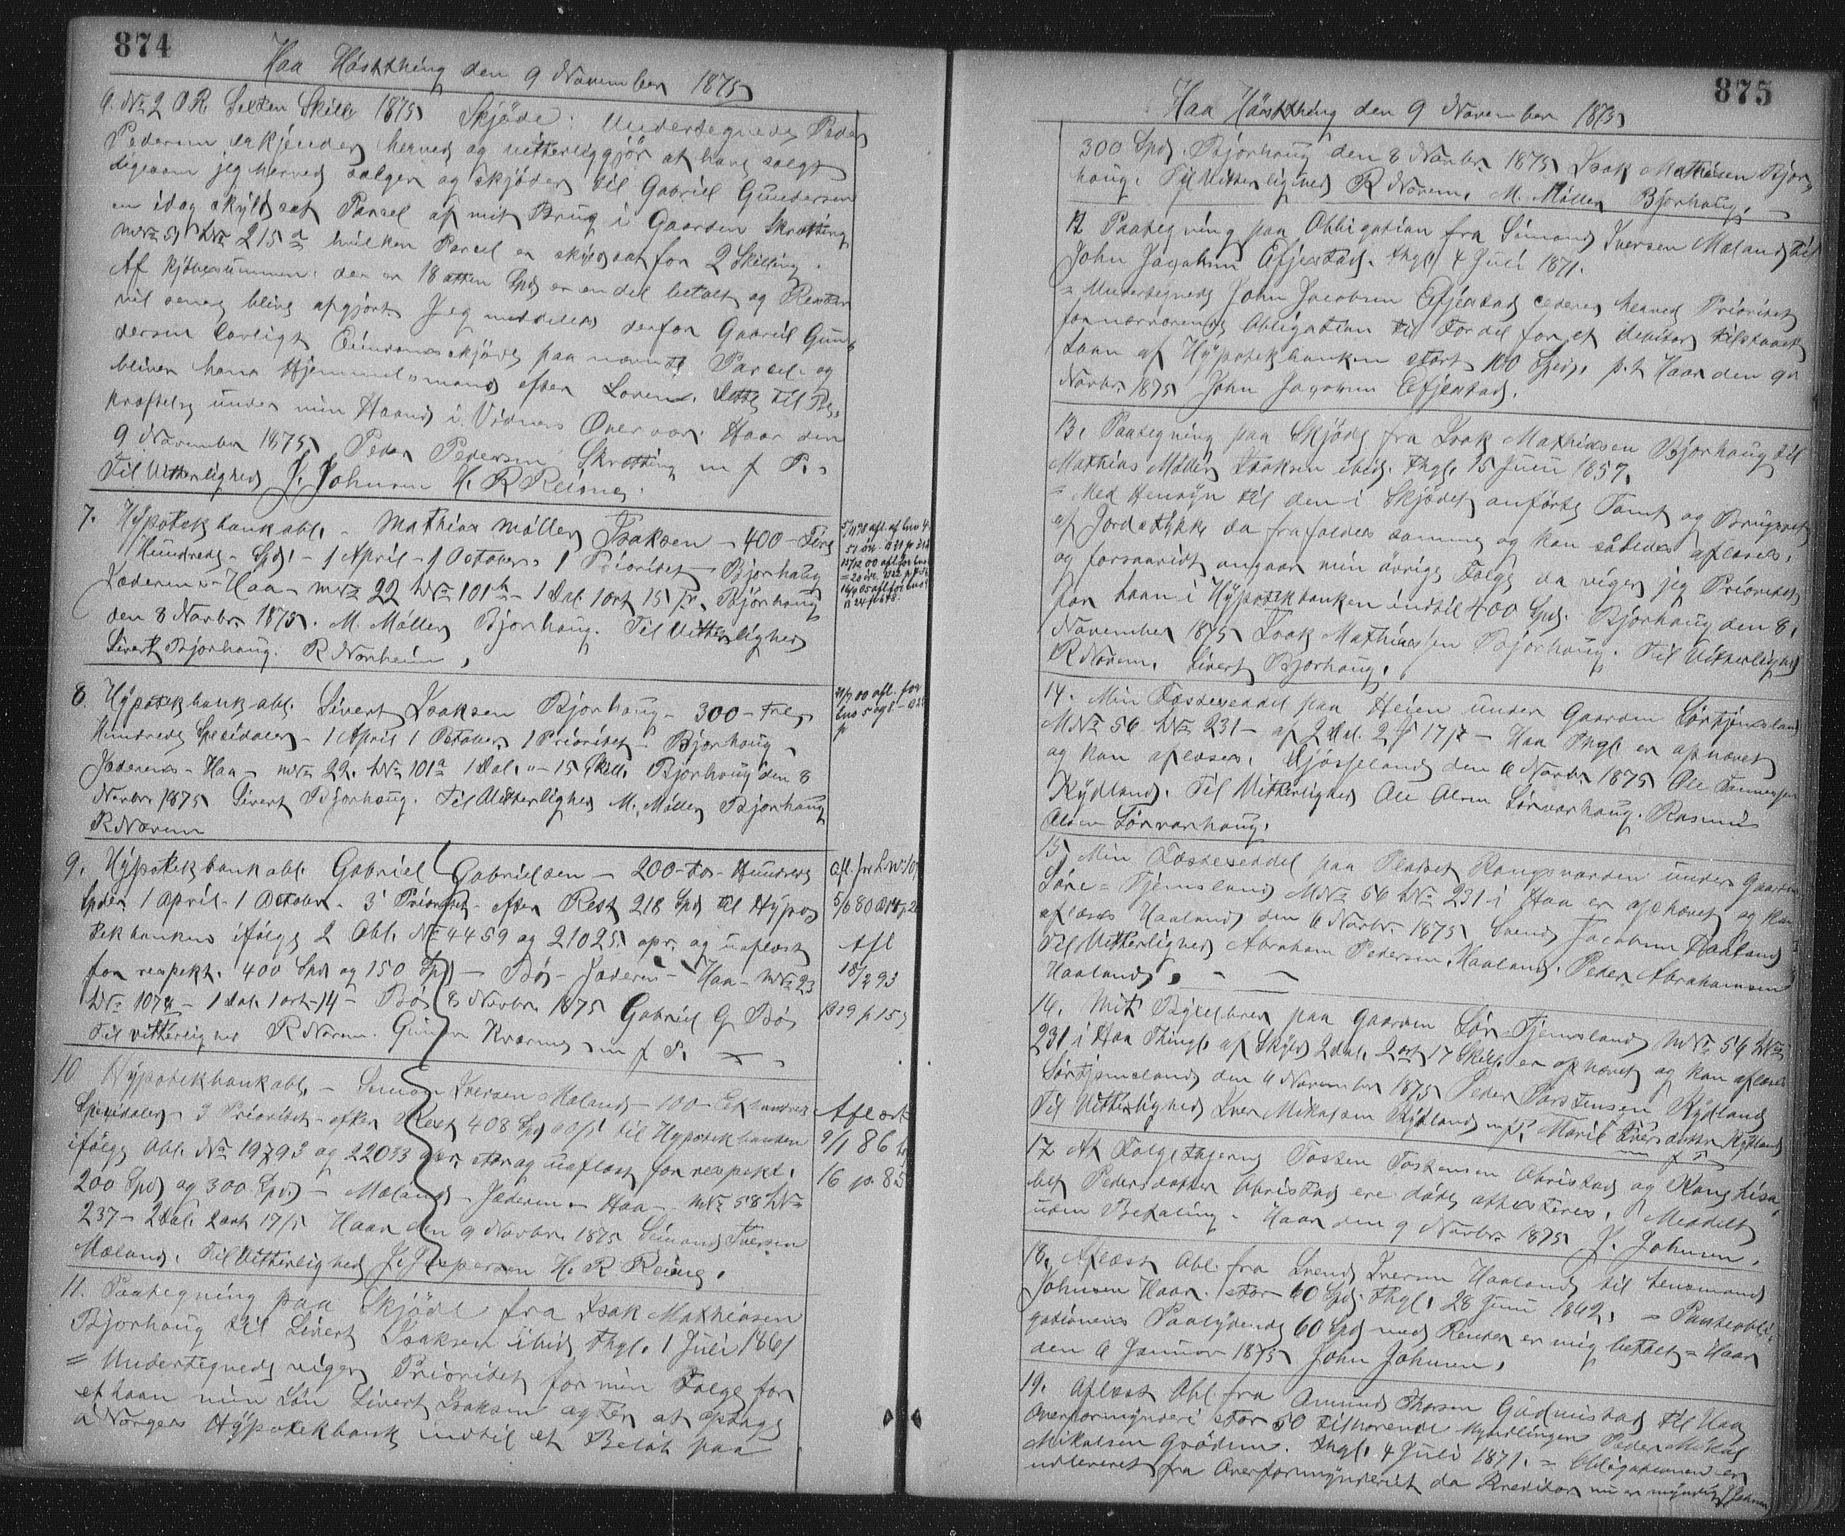 874
Haa Høstthing den 9 November 1875
6. No 2 O.R. Sexten Skill 1875 Skjøde. Undertegnede Peder
Pedersen erkjender herved og vitterliggjør at have solgt
ligesom jeg herved sælger og skjøder til Gabriel Gundersen
en idag skyldsat Parcel af mit Brug i Gaarden Skrætting
MNo 51 LNo 215a hvilken Parcel er skyldsat for 2 Skilling.
Af Kjøbesummen der er 18 atten Spd er en del betalt og Resten
vil senere blive afgjort. Jeg meddeler derfor Gabriel Gun-
dersen lovligt Eiendomsskjøde paa nævnte Parcel og
bliver hans Hjemmelsmand efter Loven. Dette til Be-
kræftelse under min Haand i Vidners Overvær. Haar den
9 November 1875 Peder Pedersen Skrætting m f P.
Til Vitterlighed J. Johnsen H. R. Reime.
7. Hypotekbankobl. - Mathias Møller Isaksen - 400 - Fire
Hundrede - Spd. - 1 April - 1 October. 1 Prioritet - Bjorhaug
Jæderen - Haa - MNo 22 LNo 101b - 1 Dal. 1 ort 15 s. Bjorhaug
den 8 Novbr 1875. M. Møller Bjorhaug. Til Vitterlighed
Sivert Bjorhaug. R Norheim.
8. Hypotekbankobl. Sivert Isaksen Bjorhaug - 300 - Tre
Hundrede Speciedaler - 1 April 1 October. 1 Prioritet - Bjorhaug -
Jæderen - Haa - MNo 22. LNo 101a 1 Dal. " - 15 Skill. Bjorhaug den 8
Novbr 1875 Sivert Bjorhaug. Til Vitterlighed M. Møller Bjorhaug
R Norem
9. Hypotekbankobl. Gabriel Gabrielsen - 200 - To - Hundrede
Spdlr 1 April - 1 October - 3 Prioritet - efter Rest 218 Spd til Hypo-
tekbanken ifølge 2 Obl. No 4459 og 21025. opr. og uaflæst
for respekt. 400 Spd og 150 Spd - Bø - Jæderen - Haa - MNo 23
LNo 107a - 1 Dal. 1 ort - 14 - Bø 8 Novbr 1875 Gabriel G. Bø
Til vitterlighed R Norem. Gunder Kværne m f P.
Afl. før
5/6 80
Afl
18/2 93
B 19 p 153
10 Hypotekbankobl. - Simon Iversen Mæland - 100 - Et hundrede
Speciedaler - 3 Prioritet - efter Rest 408 Spd til Hypotekbanken
ifølge Obl. No 19793 og 22033 opr. stor og uaflæst for respekt.
200 Spd og 300 Spd. - Mæland - Jæderen - Haa - MNo 58 LNo
237 - 2 Dal. 2 ort 17 s Haar den 9 Novbr 1875 Simon Iversen
Mæland. Til Vitterlighed J. Jespersen H. R Reime.
Aflæst
9/1 86
16 p. 85
11. Paategning paa Skjøde fra Isak Mathiasen
Bjorhaug til Sivert Isaksen ibid Thgl. 1 Juli 1861
= Undertegnede viger Prioritet for min Folge for
et Laan min Søn Sivert Isaksen agter at optage
i Norges Hypotekbank indtil et Beløb paa
875
Haa Høstthing den 9 November 1875
300 Spd. Bjorhaug den 8 Novbr. 1875 Isak Mathiasen Bjor-
haug. Til Vitterlighed R Norem. M. Møller Bjorhaug.
12 Paategning paa Obligation fra Simon Iversen Mæland til
John Jacobsen Efjestad. thgl. 4 Juli 1871.
= Undertegnede John Jacobsen Efjestad cederer herved Prioritet
for nærværende Obligation til Fordel for et debitor tilstaaet
Laan af Hypotekbanken stort 100 Spd. p.t. Haar den 9de
Novbr 1875 John Jacobsen Efjestad.
13. Paategning paa Skjøde fra Isak Mathiasen Bjorhaug til
Mathias Møller Isaksen ibid. Thgl. 15 Juni 1857.
= Med Hensyn til den i Skjødet anførte Tomt og Brugsret
af Jordstykke da frafalder samme og kan således aflæses.
og forsaavidt angaar min øvrige Folge da viger jeg Prioritet
for Laan i Hypotekbanken indtil 400 Spd. Bjorhaug den 8.
November 1875 Isak Mathiassen Bjorhaug. Til Vitterlighed
R Norem. Sivert Bjorhaug.
14. Min Fæsteseddel paa Heien under Gaarden Sørtjemsland
MNo 56 LNo 231 - af 2 Dal. 2 ort 17 s - Haa Thgl. er ophævet
og kan aflæses. Gjøsseland den 6 Novbr 1875 Ole Tønnesen
Rydland. Til Vitterlighed Ole Olsen Sørvarhaug. Rasmus
Olsen Sørvarhaug.
15 Min Fæsteseddel paa Pladset Kongsvarden under Gaarden
Søre = Tjemsland MNo 56 LNo 231 i Haa er ophævet og kan
aflæses Haaland den 6 Novbr 1875 Svend Jacobsen Haaland
Til Vitterlighed Abraham Pedersen Haaland. Peder Abrahamsen
Haaland.
16. Mit Bygselbrev paa Gaarden Sør Tjemsland MNo 56 LNo
231 i Haa Thingl. af Skyld 2 dal. 2 ort 17 Skill er ophævet og kan aflæses
Sørtjemsland den 6 November 1875 Peder Torstensen Rydland
Til Vitterlighed Iver Mikalsen Rydland m f P. Marit Iversdatter Rydland
m f P
17 At Folgetagerne Tosten Tostensen Obrestad og Kone Lisa-
bet Pedersdatter Obrestad ere døde attesteres. Meddelt
uden Betaling. Haar den 9 Novbr 1875 J. Johnsen.
18. Aflæst Obl. fra Svend Iversen Haaland til Lensmand
Johnsen Haar. stor 60 Spd. Thgl. 28 Juni 1862. = Panteobli-
gationens Paalydende 60 Spd med Renter er mig betalt = Haar
den 6 Januar 1875 John Johnsen.
19. Aflæst Obl. fra Amund Thorsen Gudmestad til Haa
Overformynderi stor 50 tilhørende Myndlingen Peder Mikal
Mikalsen Grødem. thgl. 4 Juli 1871. = Obligationen er
udleveret fra Overformynderiet da Kreditor nu er myndig J Johnsen